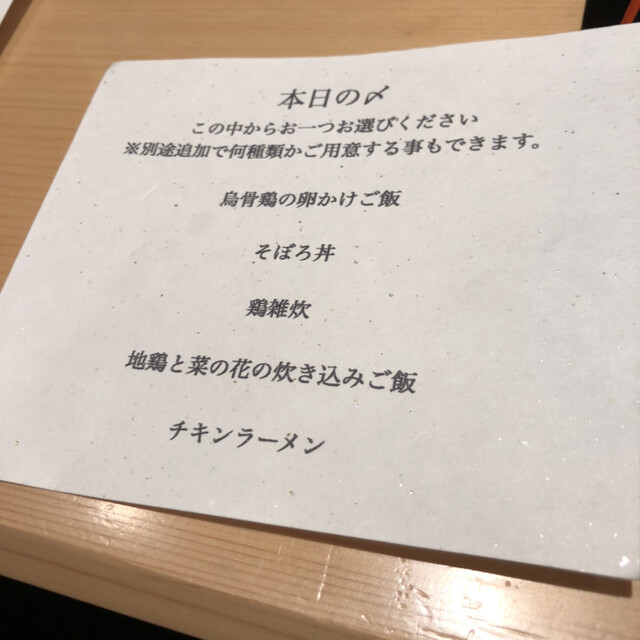 本日の〆
この中からお一つお選びください
※別途追加で何種類かご用意する事もできます。
烏骨鶏の卵かけご飯
そぼろ丼
鶏雑炊
地鶏と菜の花の炊き込みご飯
チキンラーメン